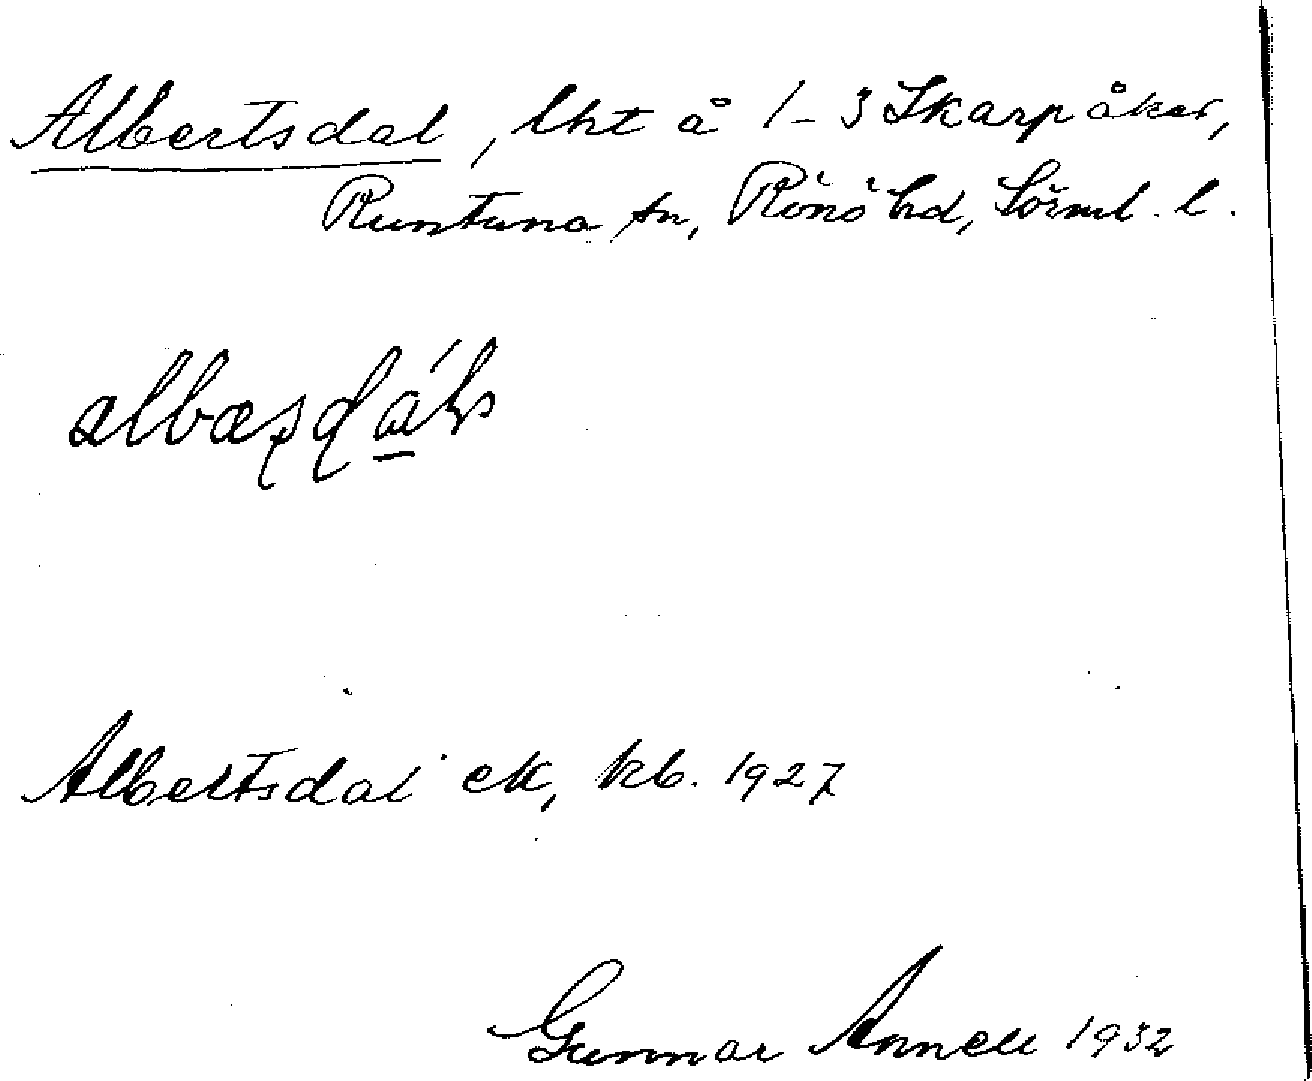 Albertsdal, lht å 1-3 Skarpåker,
Runtuna sn, Rönö hd, Sörml. l.
Albertsdal ek, kb. 1927
Gunnar Annell 1932